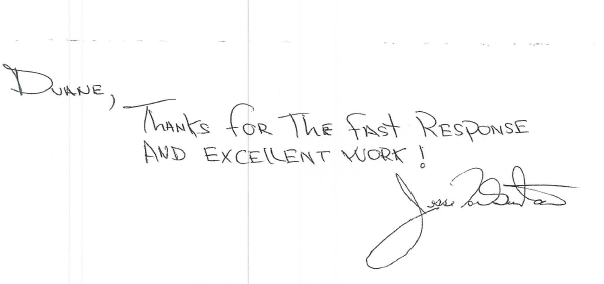 Duane,
Thanks for the fast Response
and excellent work!
Jesse